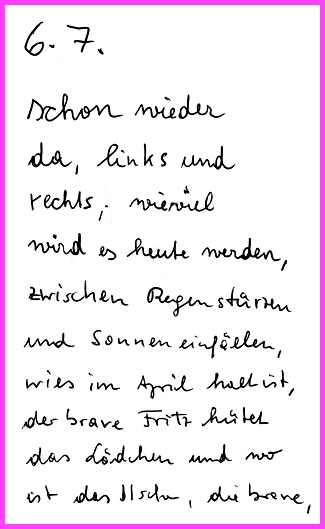 6. 7.
schon wieder
da, links und
rechts, wieviel
wird es heute werden,
zwischen Regenstürzen
und Sonneneinfällen,
wies im April halt ist,
der brave Fritz hütet
das Lädchen und wo
ist das Ilschen, die brave,